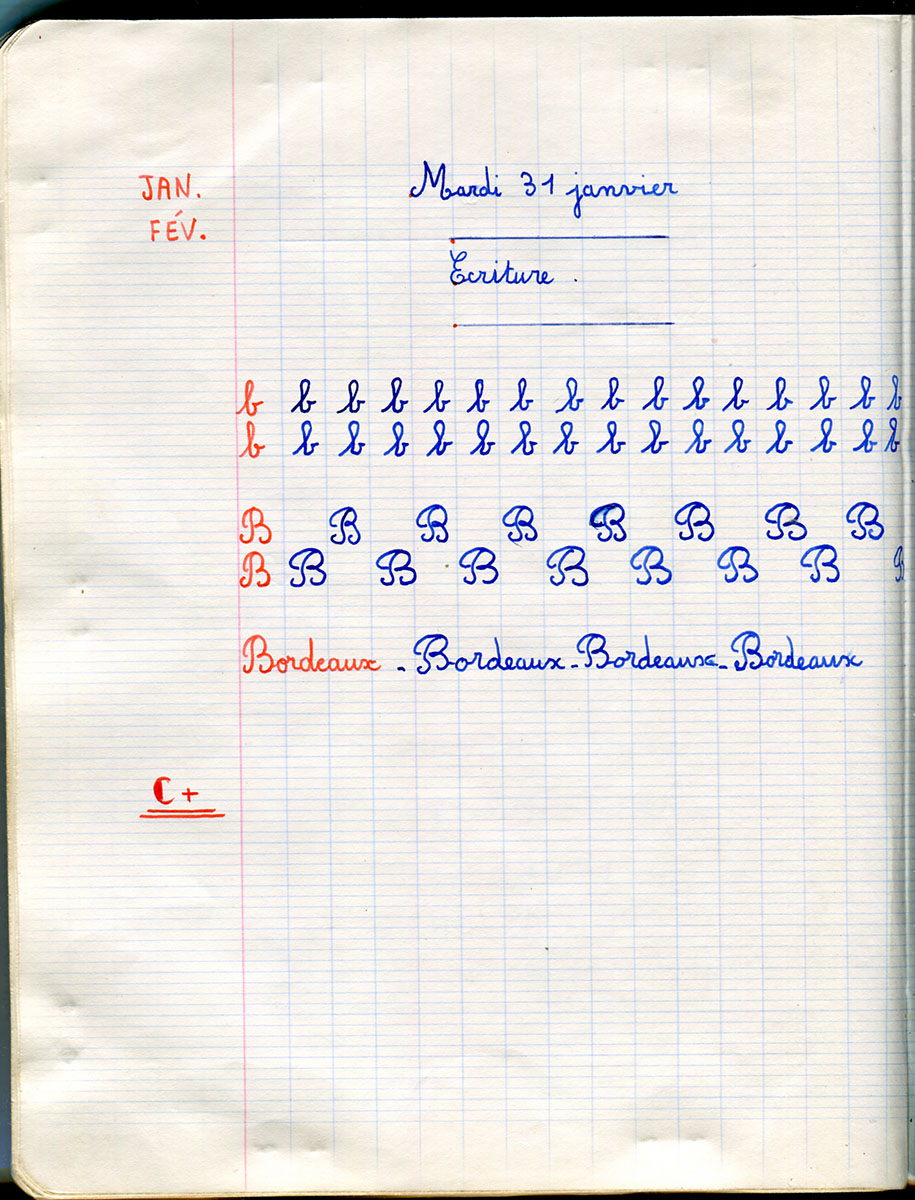 JAN.
FÉV.
Mardi 31 janvier
Ecriture .
b b b b b b b b b b b b b b b b
b b b b b b b b b b b b b b b b
B B B B B B B B
B B B B B B B B B
Bordeaux - Bordeaux - Bordeaux - Bordeaux
C +